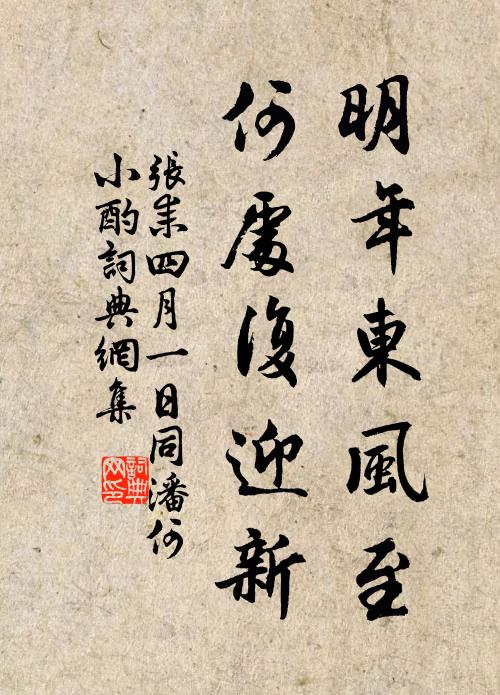 明年東風至
何處復迎新
張耒四月一日同潘何
小酌詞典網集
詞典
网印